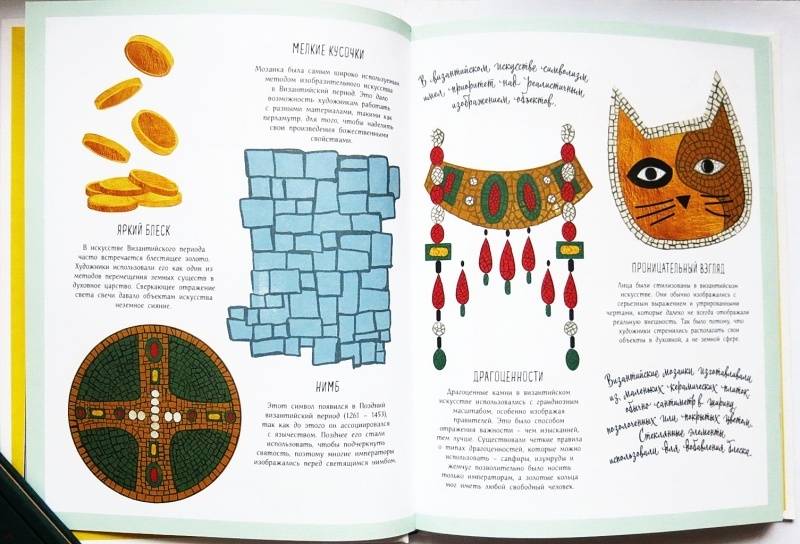 МЕЛКИЕ КУСОЧКИ
Мозаика была самым широко используемым
методом изобразительного искусства
в Византийский период. Это дало
возможность художникам работать
с разными материалами, такими как
перламутр, для того, чтобы наделять
свои произведения божественными
свойствами.
ЯРКИЙ БЛЕСК
В искусстве Византийского периода
часто встречается блестящее золото.
Художники использовали его как один из
методов перемещения земных существ в
духовное царство. Сверкающее отражение
света свечи давало объектам искусства
неземное сияние.
НИМБ
Этот символ появился в Поздний
византийский период (1261 – 1453),
так как до этого он ассоциировался
с язычеством. Позднее его стали
использовать, чтобы подчеркнуть
святость, поэтому многие императоры
изображались перед светящимся нимбом.
В византийском искусстве символизм
имел приоритет над реалистичным
изображением объектов.
ПРОНИЦАТЕЛЬНЫЙ ВЗГЛЯД
Лица были стилизованы в византийском
искусстве. Они обычно изображались с
серьезным выражением и утрированными
чертами, которые далеко не всегда отображали
реальную внешность. Так было потому, что
художники стремились располагать свои
объекты в духовной, а не земной сфере.
ДРАГОЦЕННОСТИ
Драгоценные камни в византийском
искусстве использовались с грандиозным
масштабом, особенно изображая
правителей. Это было способом
отражения важности – чем изысканней,
тем лучше. Существовали четкие правила
о типах драгоценностей, которые можно
использовать – сапфиры, изумруды и
жемчуг позволительно было носить
только императорам, а золотые кольца
мог иметь любой свободный человек.
Византийские мозаики изготавливали
из маленьких керамических плиток,
обычно сантиметр в ширину,
позолоченных или покрытых цветом.
Стеклянные элементы
использовали для добавления блеска.